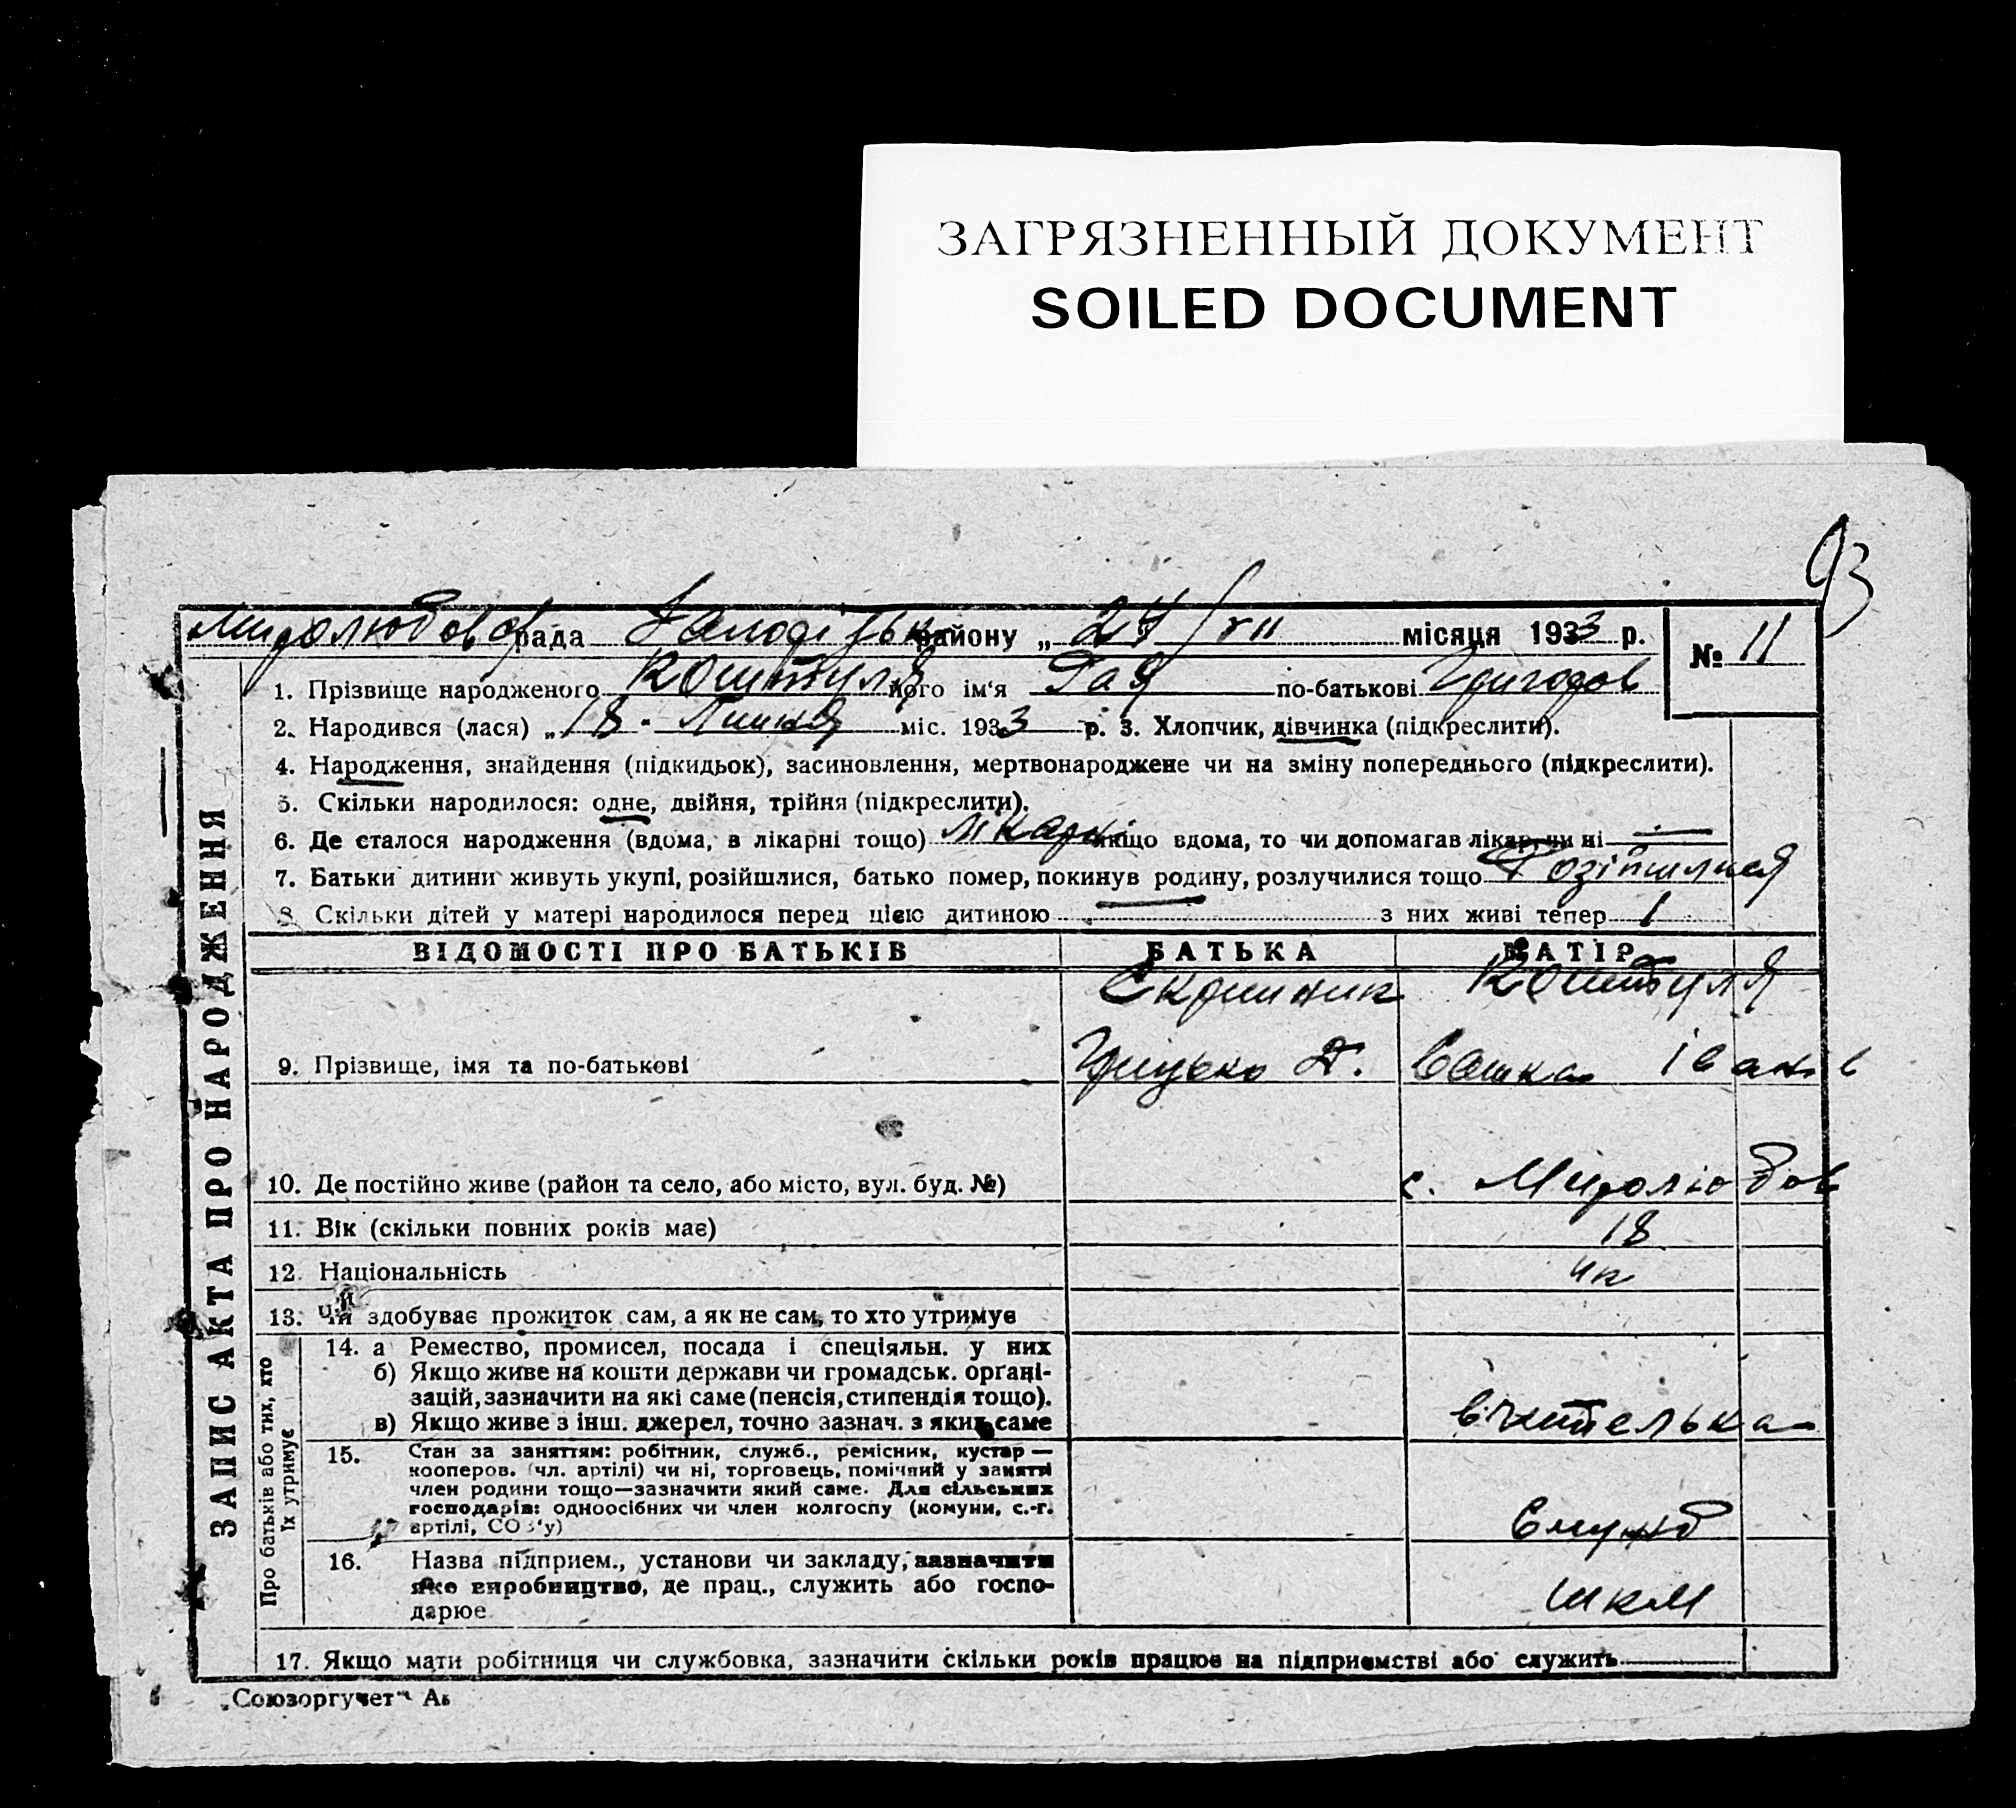 ЗАГРЯЗНЕННЫЙ ДОКУМЕНТ
SOILED DOCUMENT
93
Миролюбов рада району „ 24/VII місяця 1933 р. № 11
1. Прізвище народженого Коштуля його ім'я Рая по-батькові Григоров
2. Народився (лася) „18 Липня міс. 1933 р. 3. Хлопчик, дівчинка (підкреслити).
4. Народження, знайдення (підкидьок), засиновлення, мертвонароджене чи на зміну попереднього (підкреслити).
5. Скільки народилося: одне, двійня, трійня (підкреслити).
6. Де сталося народження (вдома, в лікарні тощо) лікарні якщо вдома, то чи допомагав лікар, чи ні —
7. Батьки дитини живуть укупі, розійшлися, батько помер, покинув родину, розлучилися тощо Розійшлися
8 Скільки дітей у матері народилося перед цією дитиною з них живі тепер 1
ЗАПИС АКТА ПРО НАРОДЖЕННЯ
ВІДОМОСТІ ПРО БАТЬКІВ БАТЬКА МАТІР
Скрипник Коштуля
9. Прізвище, імя та по-батькові Грицько Іванів
10. Де постійно живе (район та село, або місто, вул. буд. №) с. Миролюбов
11. Вік (скільки повних років має) 18
12. Національність ук
13. Чи здобуває прожиток сам, а як не сам, то хто утримує
Про батьків або тих, хто
їх утримує
14. а Ремество, промисел, посада і спеціяльн. у них
б) Якщо живе на кошти держави чи громадськ. органі-
зацій, зазначити на які саме (пенсія, стипендія тощо).
в) Якщо живе з інш. джерел, точно зазнач. з яких саме вчителька
15. Стан за заняттям: робітник, служб., ремісник, кустар —
кооперов. (чл. артілі) чи ні, торговець, помічний у занятті
член родини тощо—зазначити який саме. Для сільських
господарів: одноосібних чи член колгоспу (комуни, с.-г.
артілі, СОЗ'у) Служб
16. Назва підприєм., установи чи закладу, зазначити
яке виробництво, де прац., служить або госпо-
дарює ШКМ
17. Якщо мати робітниця чи службовка, зазначити скільки років працює на підприємстві або служить
„Союзоргучет"